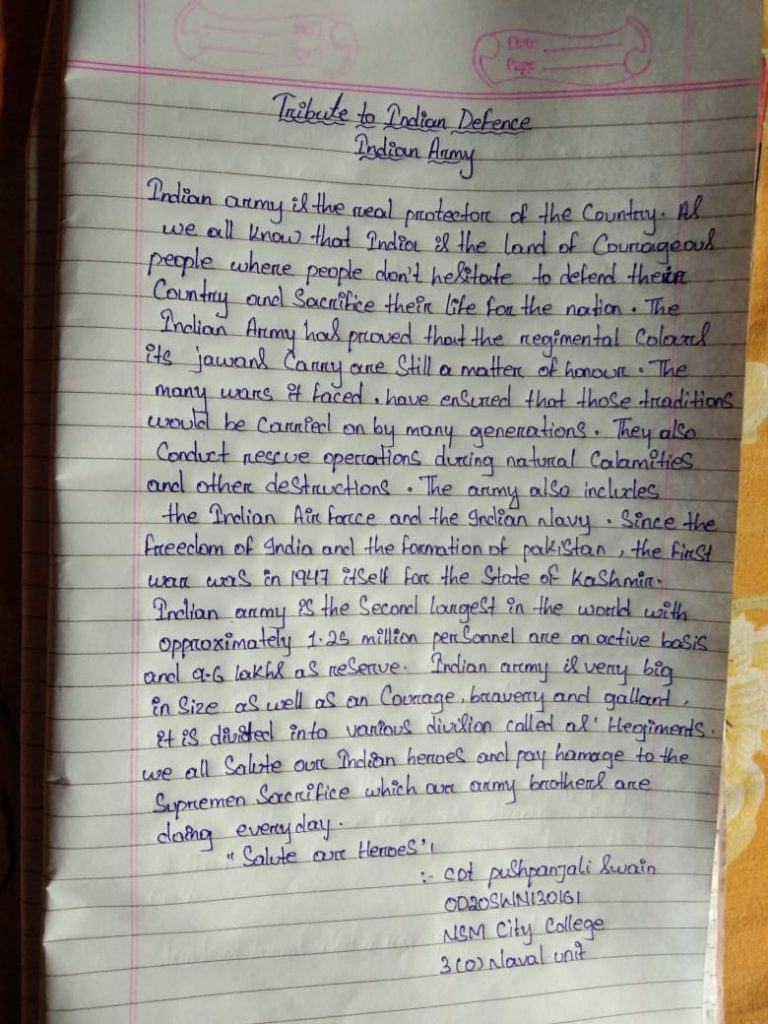 Date
Page
Tribute to Indian Defence
Indian Army
Indian army is the real protector of the Country. As
we all know that India is the land of Courageous
people where people don't hesitate to defend their
Country and Sacrifice their life for the nation. The
Indian Army has proved that the regimental Colours
its jawans Carry are Still a matter of honour. The
many wars it faced, have ensured that those traditions
would be carried on by many generations. They also
Conduct rescue operations during natural Calamities
and other destructions. The army also includes
the Indian Air force and the Indian Navy. Since the
freedom of India and the formation of pakistan, the first
war was in 1947 itself for the State of Kashmir.
Indian army is the Second largest in the world with
approximately 1.25 million personnel are on active basis
and 9.6 lakhs as reserve. Indian army is very big
in Size as well as an Courage, bravery and gallant,
it is divided into various division called as 'Regiments.
we all Salute our Indian heroes and pay homage to the
Supremen Sacrifice which our army brothers are
doing everyday.
"Salute our Heroes"!
:- CDT pushpanjali Swain
OD20SWN130161
NSM City College
3(O) Naval unit